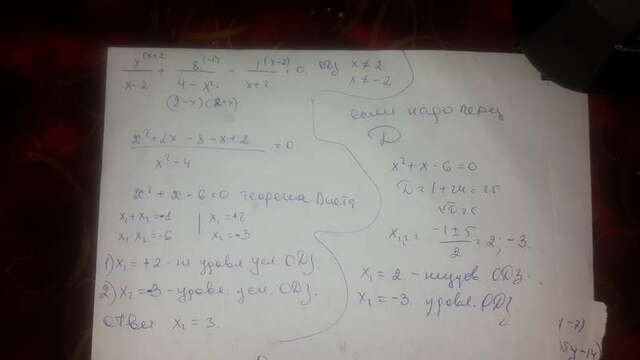 x^(x+2 / x-2 + 8^(-1) / 4-x² - 1^(x-2) / x+2 = 0. ОДЗ x≠2
(2-x)(2+x) x≠-2
x²+2x-8-x+2 / x²-4 = 0
x²+x-6=0 теорема Виета
x₁+x₂=-1 | x₁=+2
x₁ x₂=-6 | x₂=-3
1) x₁=+2 - не удовл усл ОДЗ
2) x₂=-3 - удовл. усл. ОДЗ.
Ответ x₂=3.
если надо через
D
x²+x-6=0
D=1+24=25
√D=5
x₁,₂= -1±5 / 2 = 2; -3.
x₁=2 - неудов. ОДЗ.
x₂=-3 удовл. ОДЗ
-7)
15y-14)